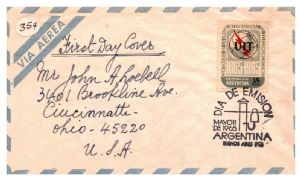 35¢
VIA AEREA
First Day Cover
Mr John A Hoebell
3401 Brookline Ave.
Cincinnatte-
Ohio-45220
U.S.A.
UIT
18
DIA DE EMISION
MAYO 11
DE 1965
ARGENTINA
BUENOS AIRES